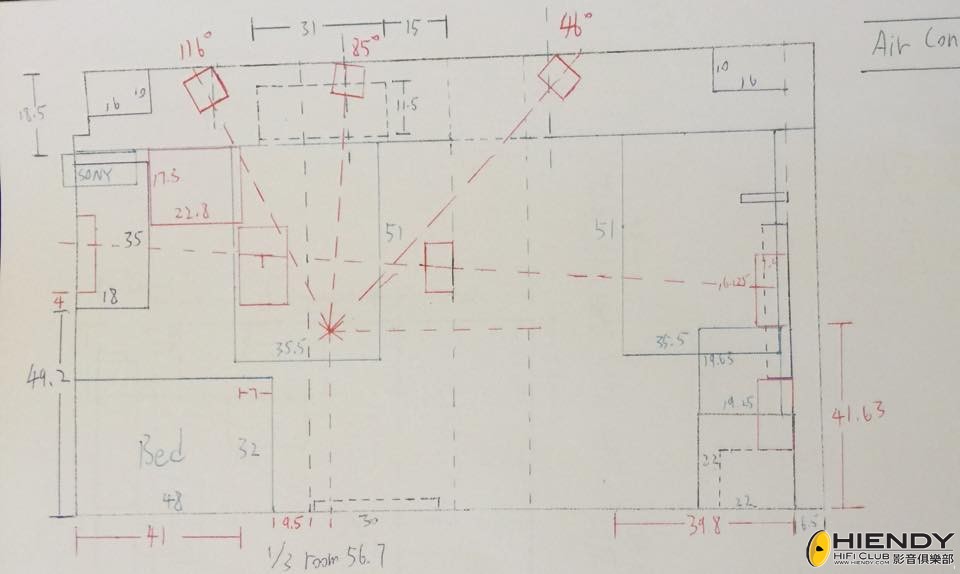 31
15
116°
85°
46°
Air Con
18.5
16
10
11.5
10
16
SONY
17.5
22.8
35
51
51
18
4
35.5
35.5
19.63
49.2
19.25
41.63
7
Bed
32
48
22
22
9.5
30
39.8
6.5
41
1/3 room 56.7
HIENDY
HiFi CLUB 影音俱樂部
WWW.HIENDY.COM